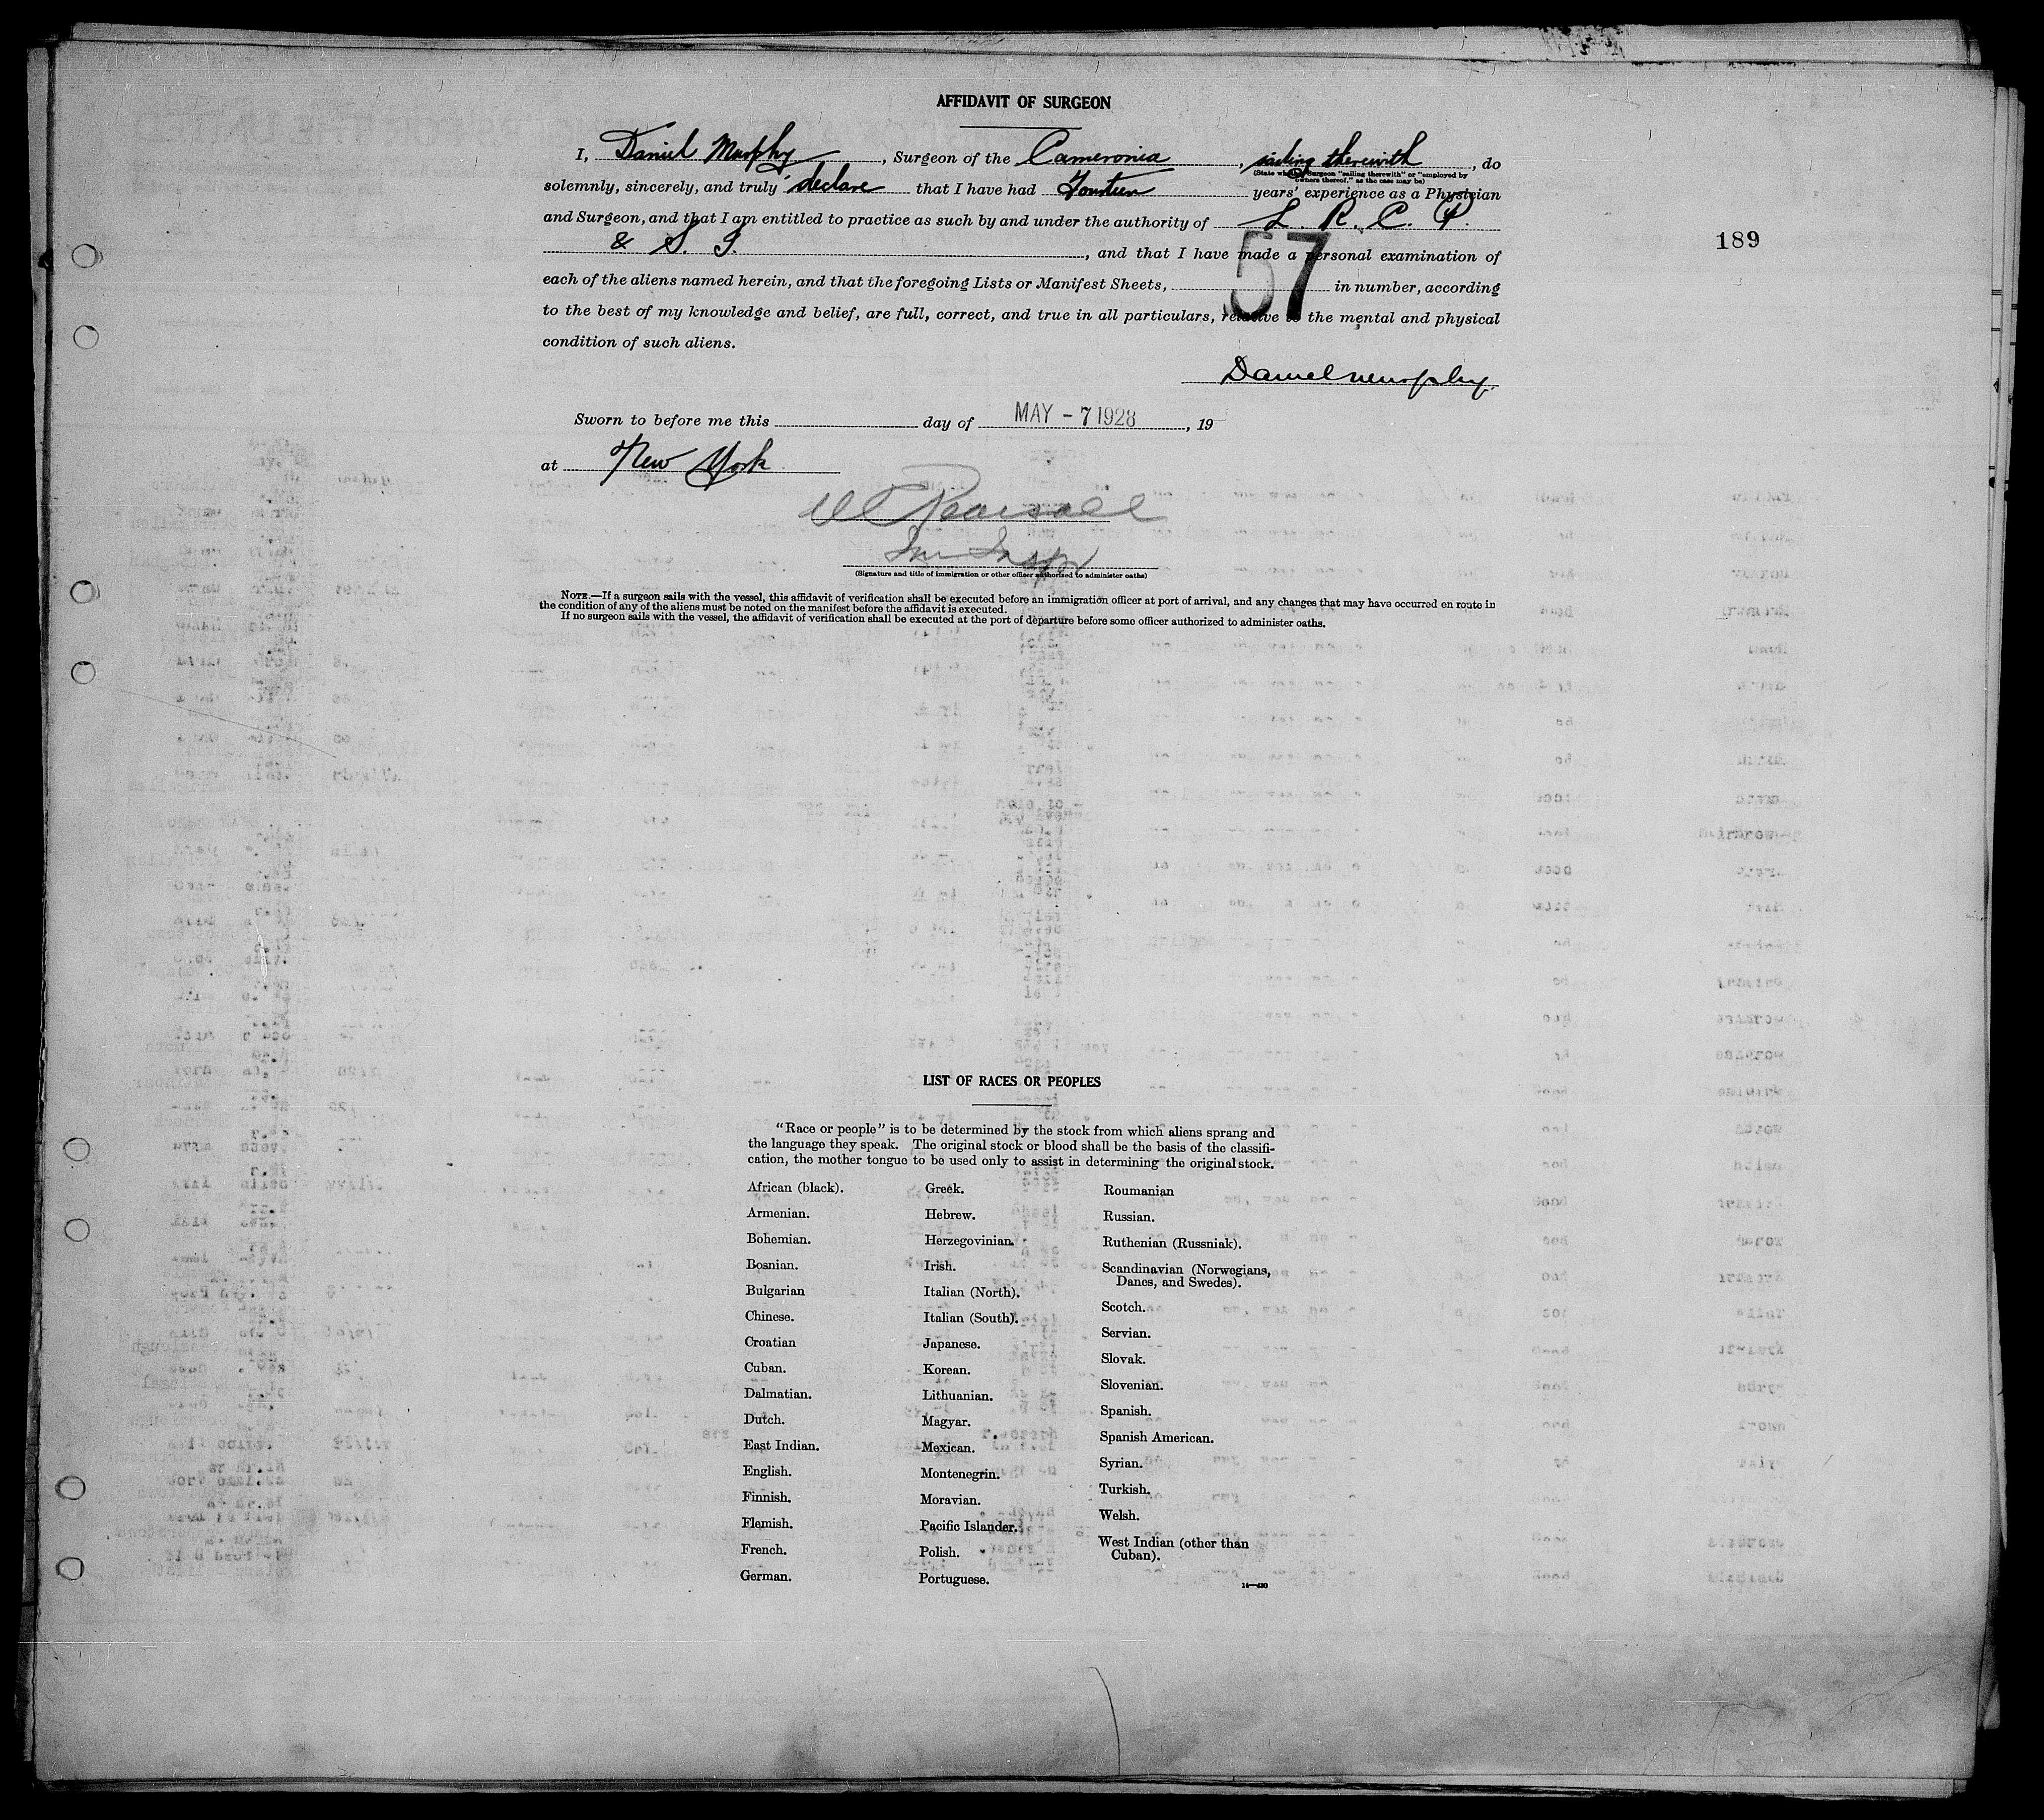 AFFIDAVIT OF SURGEON
I, Daniel Murphy, Surgeon of the Cameronia, sailing therewith, do
(State whether Surgeon "sailing therewith" or "employed by
owners thereof," as the case may be)
solemnly, sincerely, and truly declare that I have had Fourteen years' experience as a Physician
and Surgeon, and that I am entitled to practice as such by and under the authority of L. R. C. P.
& S. I., and that I have made a personal examination of
189
each of the aliens named herein, and that the foregoing Lists or Manifest Sheets, 57 in number, according
to the best of my knowledge and belief, are full, correct, and true in all particulars, relative to the mental and physical
condition of such aliens.
Daniel Murphy.
Sworn to before me this day of MAY - 7 1928, 19
at New York
Pearsall
Imm Inspr
(Signature and title of immigration or other officer authorized to administer oaths)
NOTE.—If a surgeon sails with the vessel, this affidavit of verification shall be executed before an immigration officer at port of arrival, and any changes that may have occurred en route in
the condition of any of the aliens must be noted on the manifest before the affidavit is executed.
If no surgeon sails with the vessel, the affidavit of verification shall be executed at the port of departure before some officer authorized to administer oaths.
LIST OF RACES OR PEOPLES
"Race or people" is to be determined by the stock from which aliens sprang and
the language they speak. The original stock or blood shall be the basis of the classifi-
cation, the mother tongue to be used only to assist in determining the original stock.
African (black).
Armenian.
Bohemian.
Bosnian.
Bulgarian
Chinese.
Croatian
Cuban.
Dalmatian.
Dutch.
East Indian.
English.
Finnish.
Flemish.
French.
German.
Greek.
Hebrew.
Herzegovinian.
Irish.
Italian (North).
Italian (South).
Japanese.
Korean.
Lithuanian.
Magyar.
Mexican.
Montenegrin.
Moravian.
Pacific Islander.
Polish.
Portuguese.
Roumanian
Russian.
Ruthenian (Russniak).
Scandinavian (Norwegians,
Danes, and Swedes).
Scotch.
Servian.
Slovak.
Slovenian.
Spanish.
Spanish American.
Syrian.
Turkish.
Welsh.
West Indian (other than
Cuban).
14—430